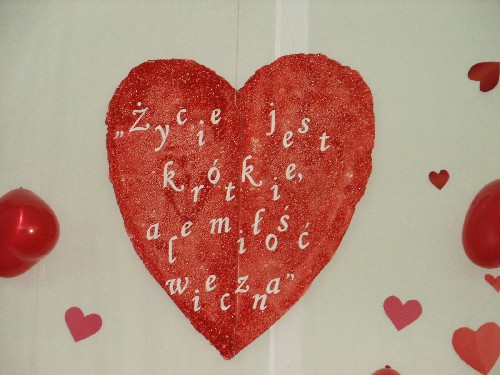 „Życie jest
krótkie,
ale miłość
wieczna”